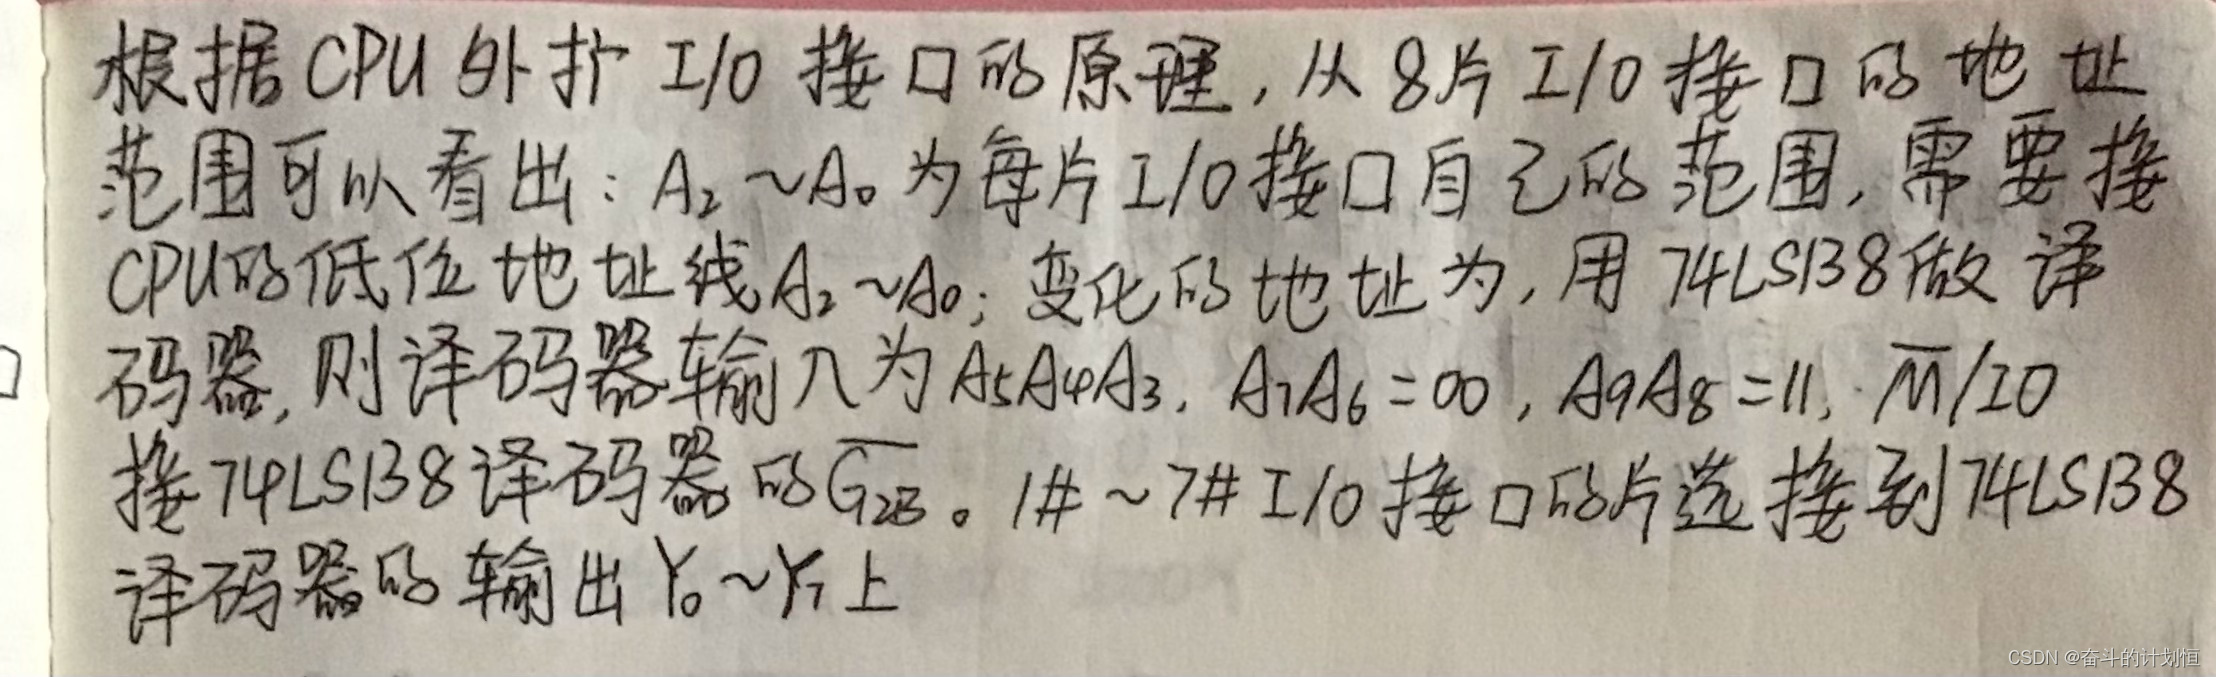 根据CPU外扩I/O接口的原理,从8片I/O接口的地址
范围可以看出:A₂~A₀为每片I/O接口自己的范围,需要接
CPU的低位地址线A₂~A₀;变化的地址为,用74LS138做译
码器,则译码器输入为A₅A₄A₃,A₇A₆=00,A₉A₈=11,M̅/IO
接74LS138译码器的G̅₂B̅。1#~7#I/O接口的片选接到74LS138
译码器的输出Y₀~Y₇上
CSDN @奋斗的计划恒